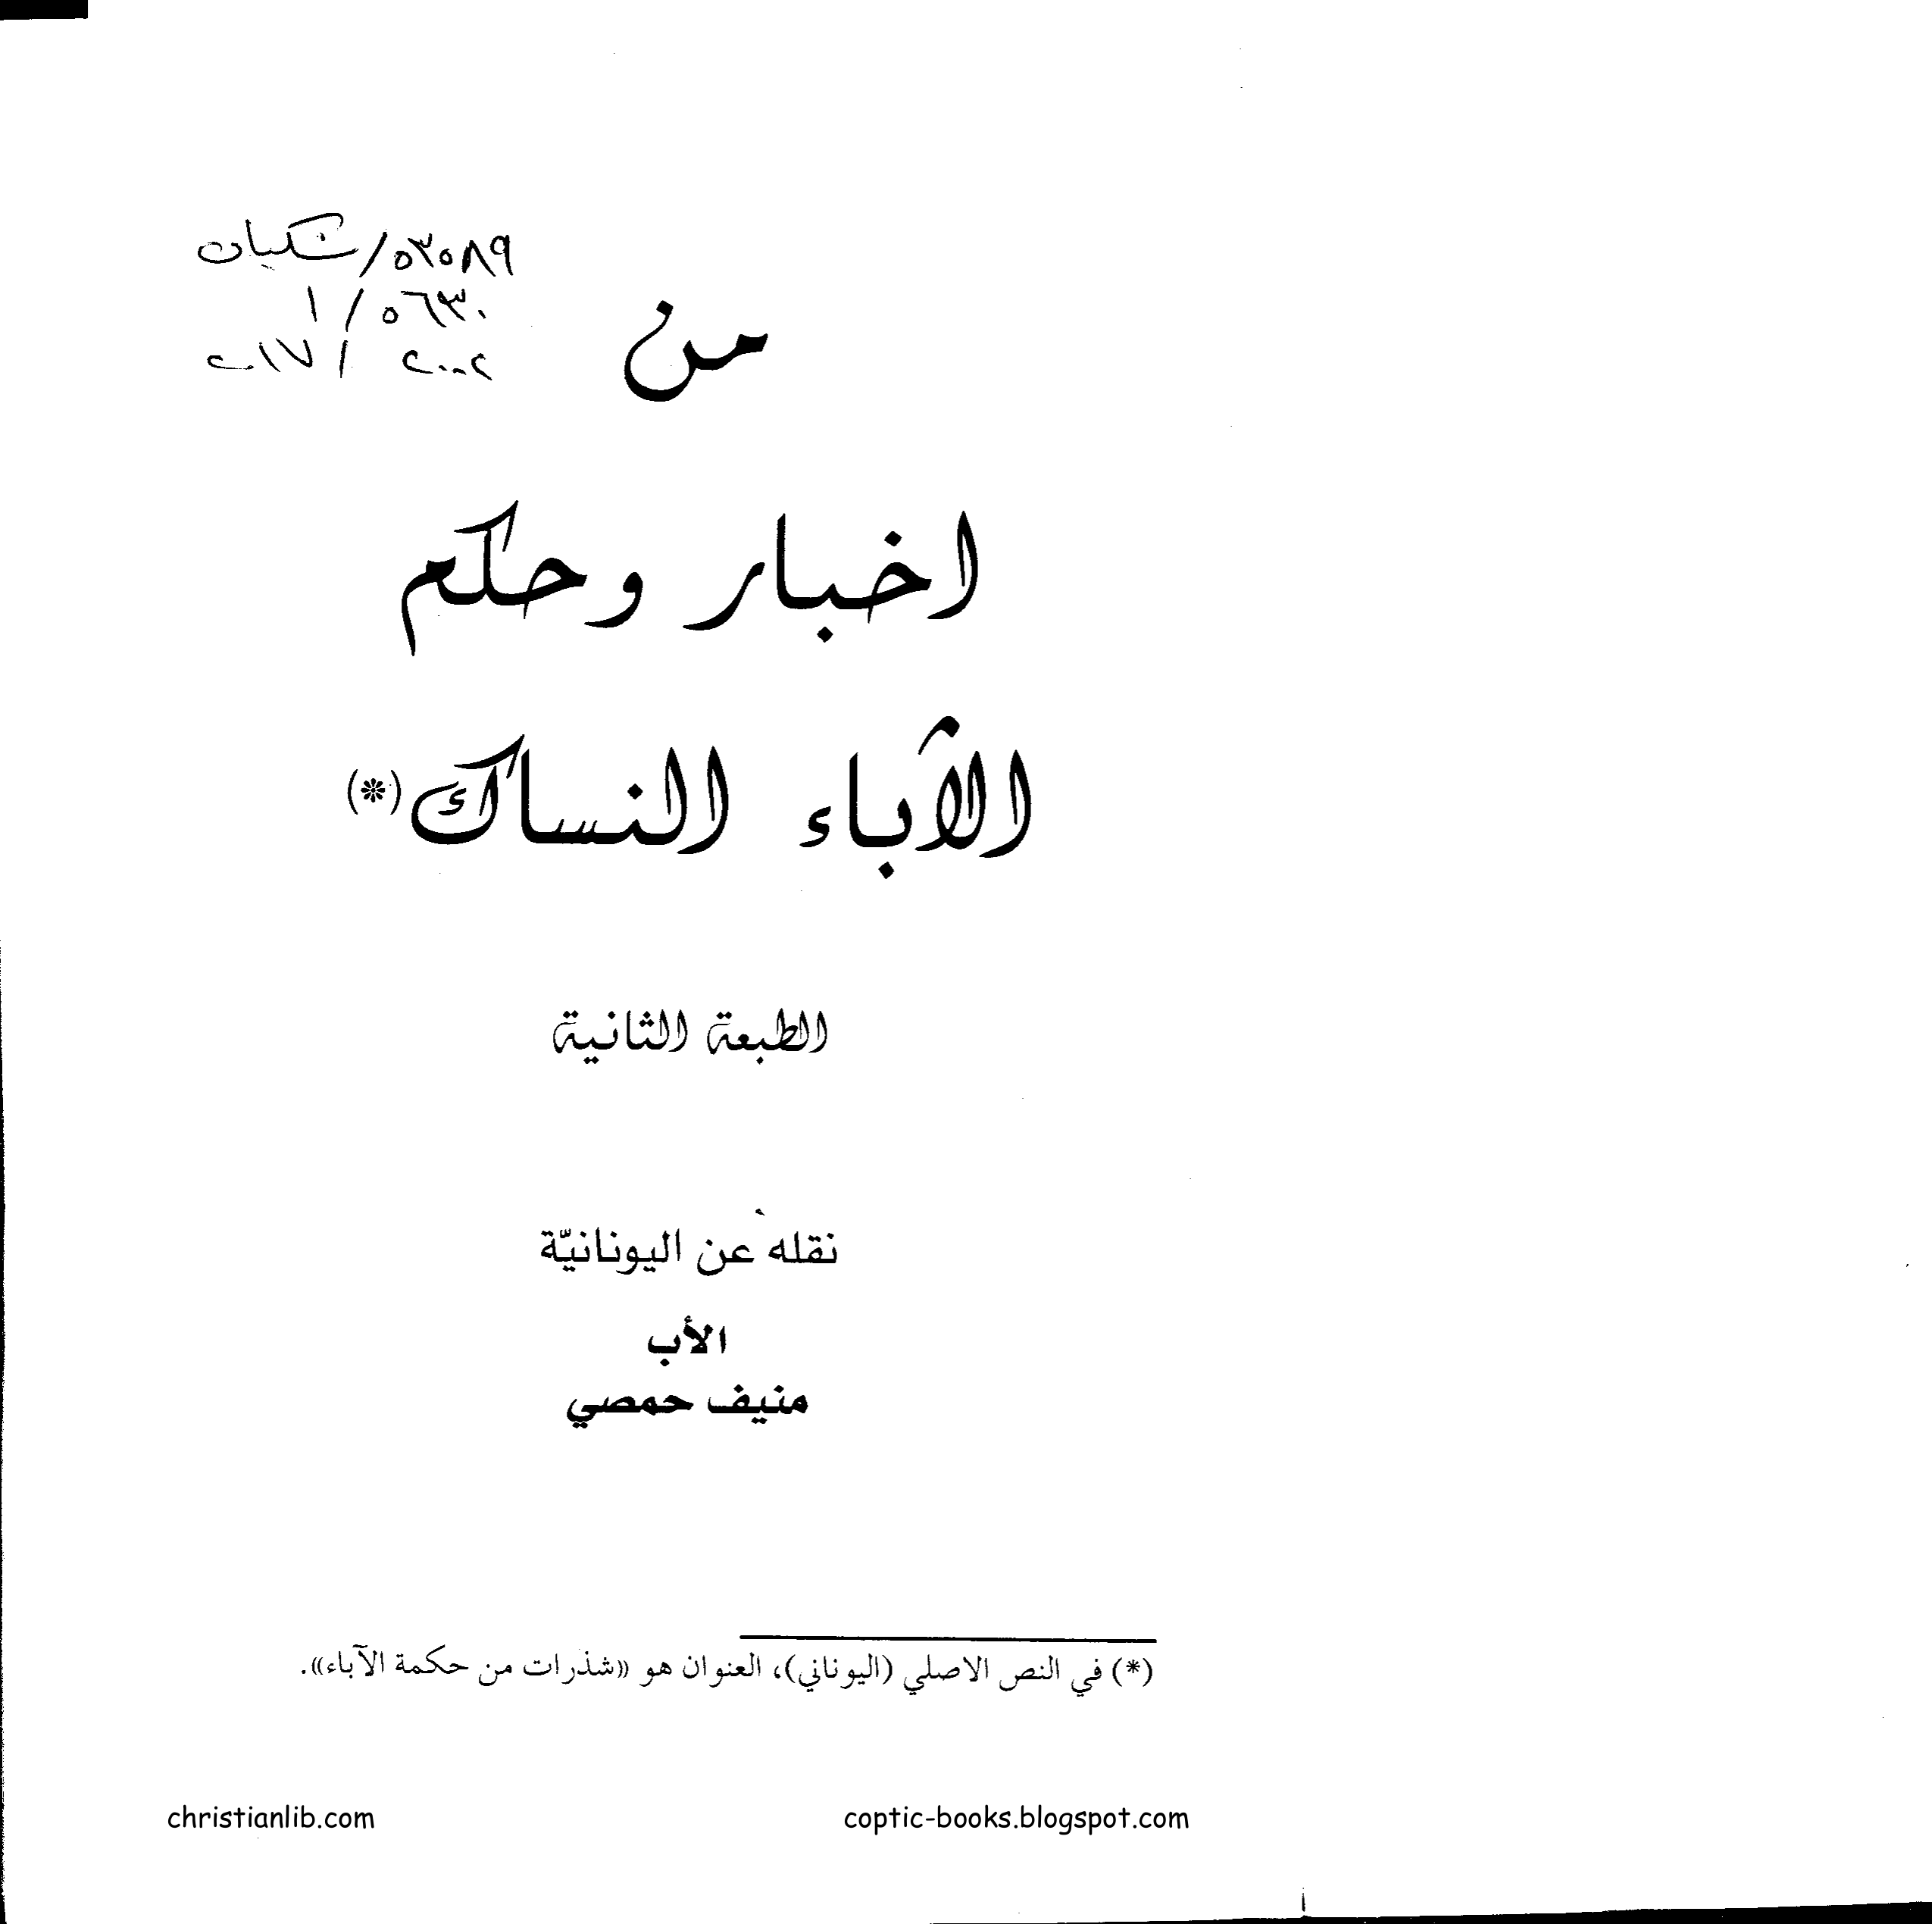 ٥٣٥٨٩/
٥٦٣٠ / ١
من
اخبار وحكم
الآباء النساك (*)
الطبعة الثانية
نقله عن اليونانيّة
الأب
منيف حمصي
(*) في النص الاصلي (اليوناني)، العنوان هو «شذرات من حكمة الآباء».
christianlib.com coptic-books.blogspot.com